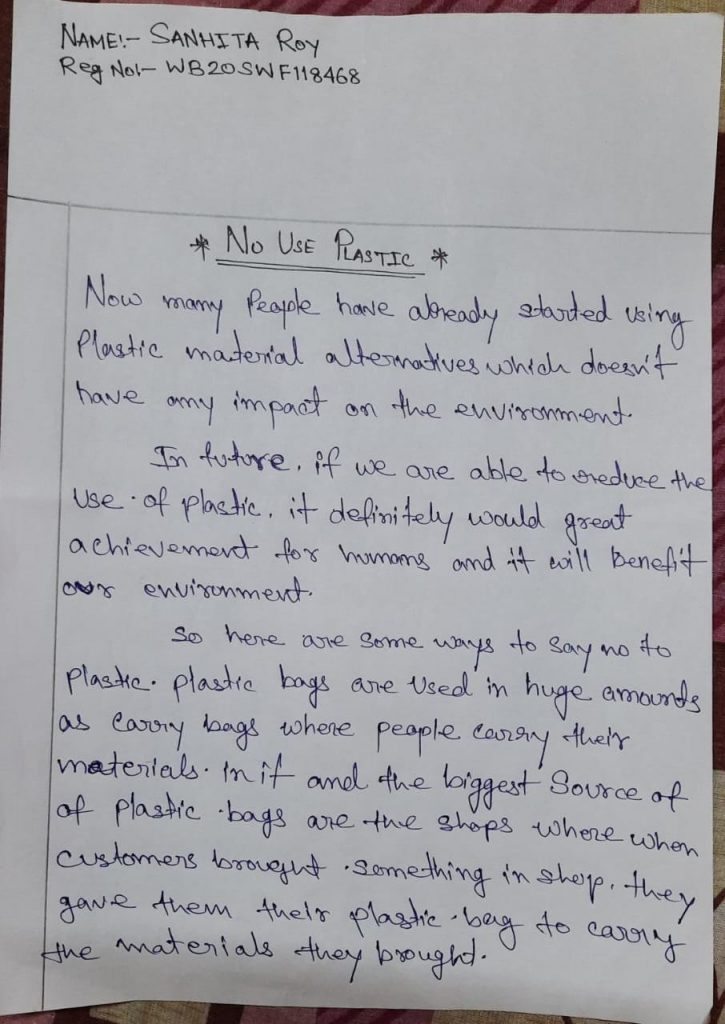 NAME:- SANHITA ROY
Reg No:- WB20SWF118468
* NO USE PLASTIC *
Now many People have already started using
Plastic material alternatives which doesn't
have any impact on the environment.
In future, if we are able to reduce the
Use of plastic, it definitely would great
achievement for humans and it will benefit
our environment.
So here are some ways to say no to
plastic. plastic bags are used in huge amounts
as carry bags where people carry their
materials. in it and the biggest Source of
of plastic bags are the shops where when
customers brought something in shop, they
gave them their plastic bag to carry
the materials they brought.